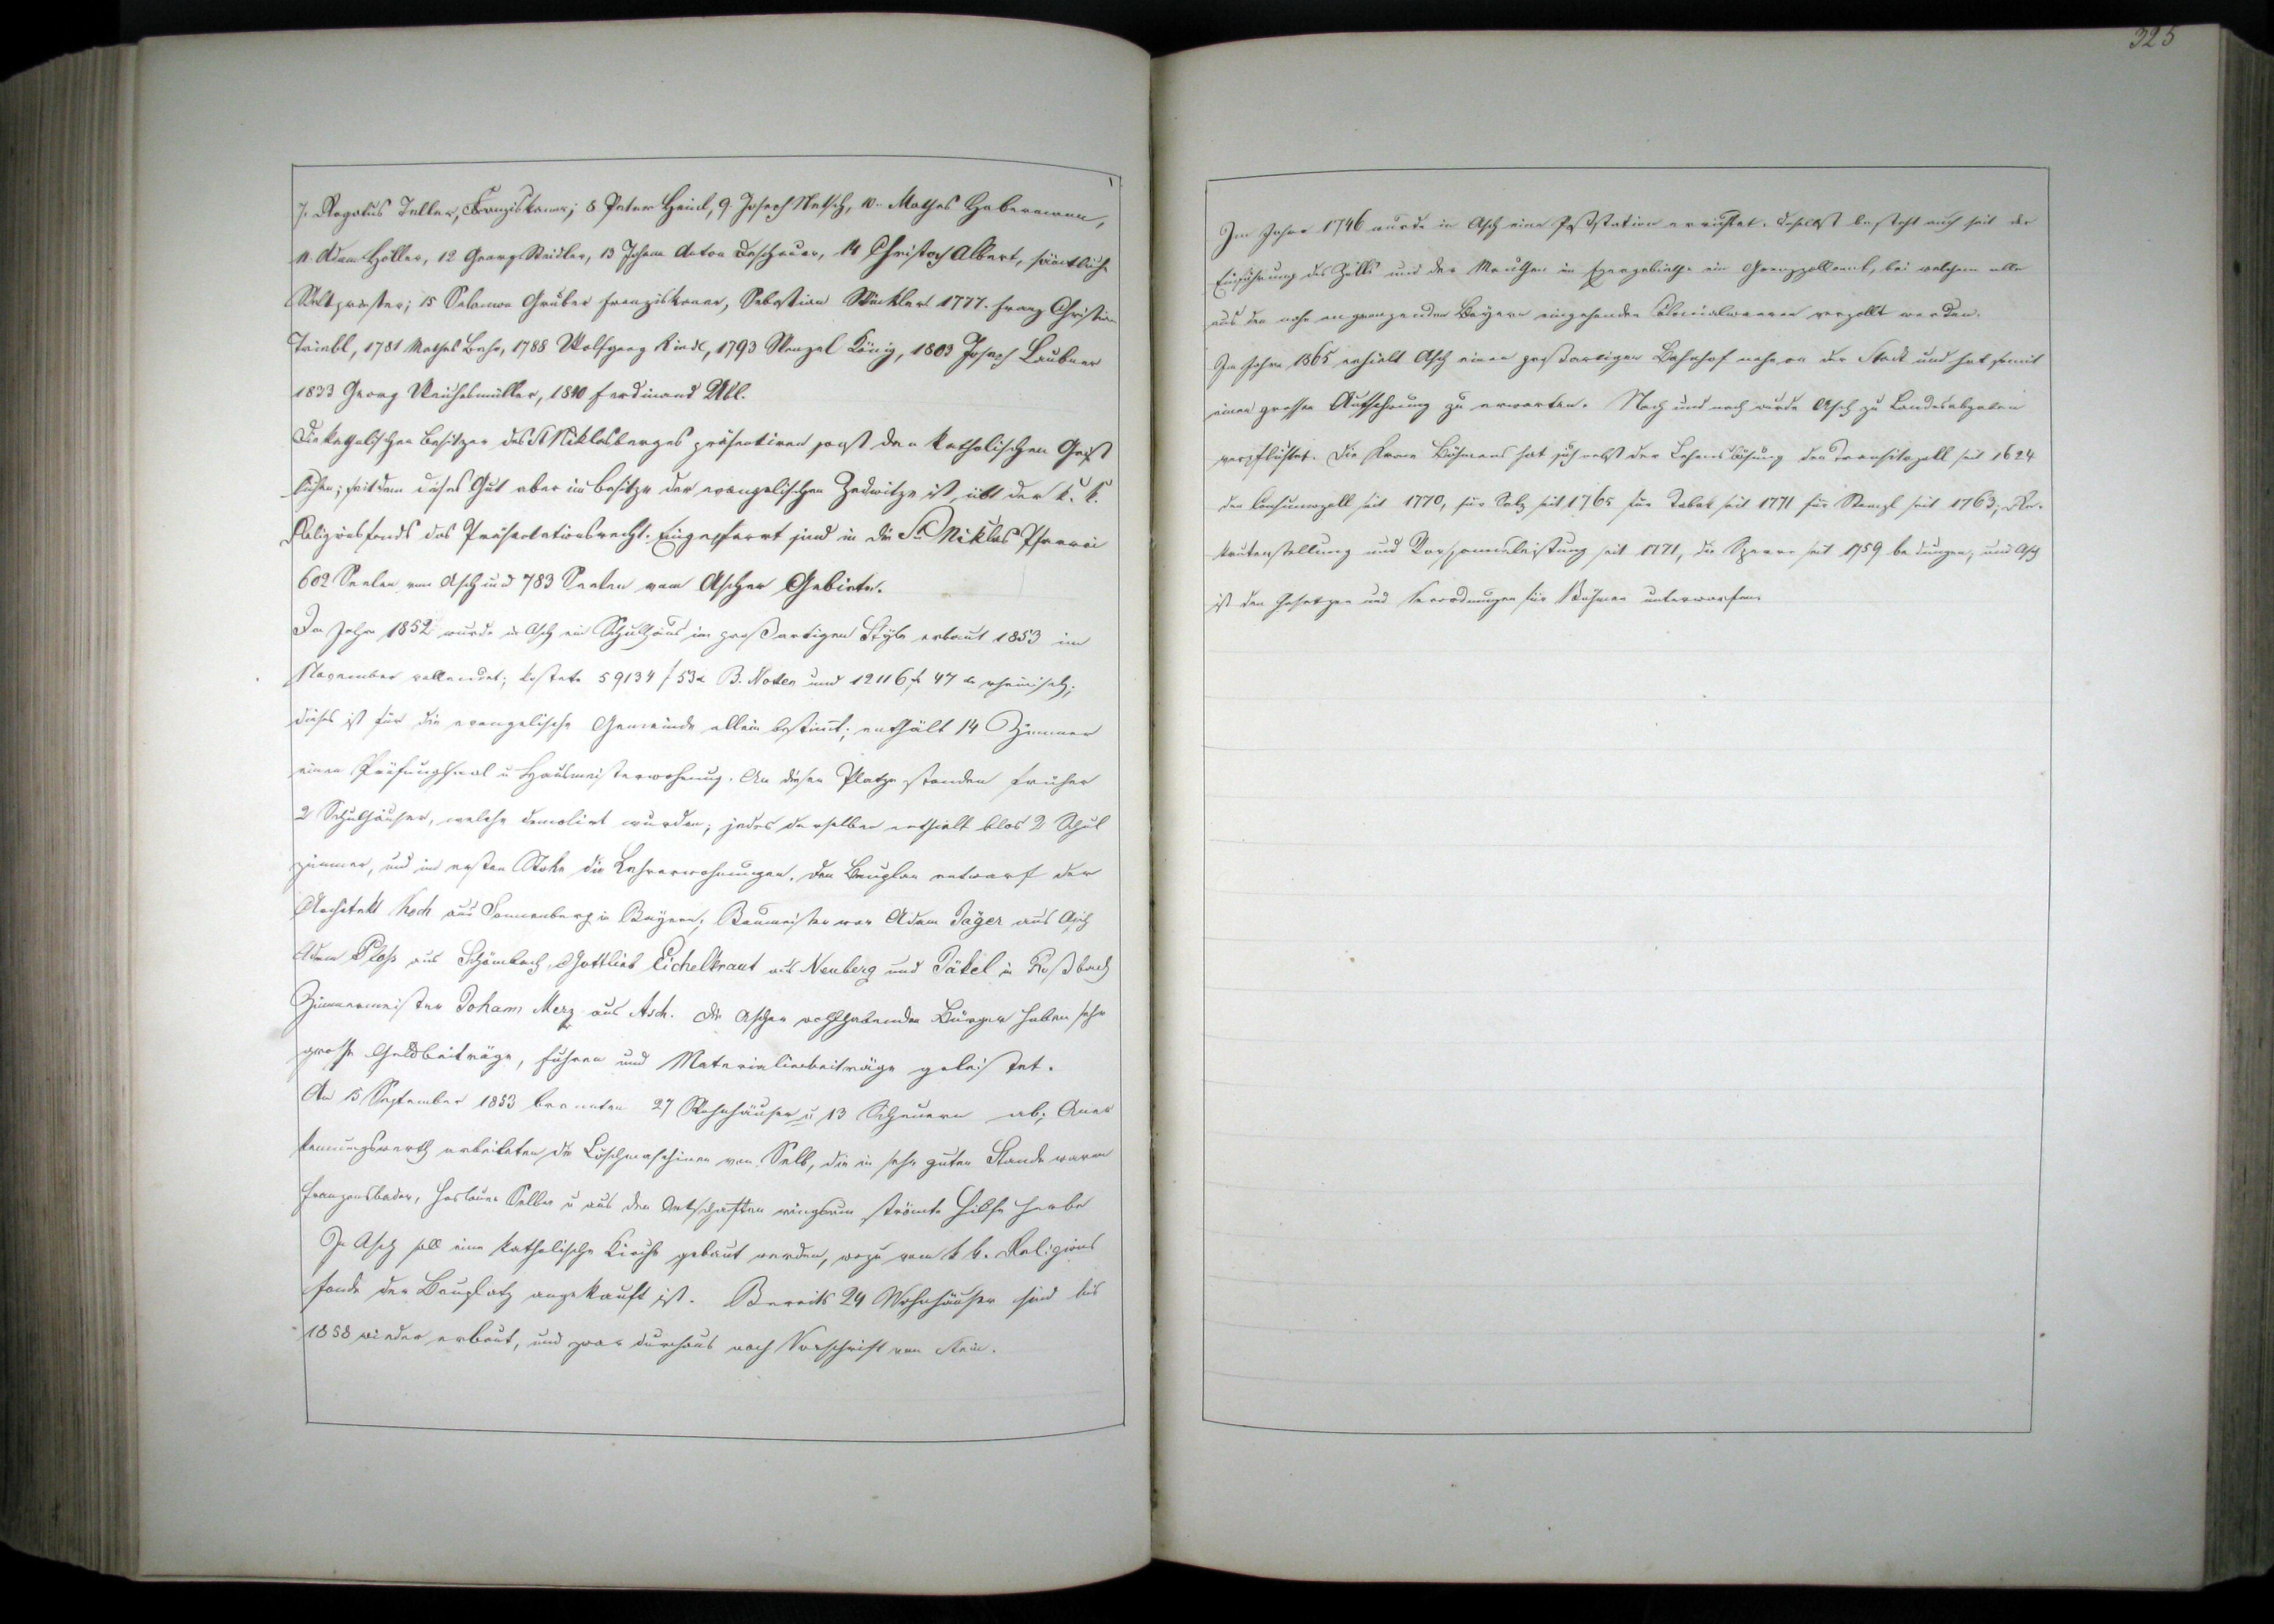 7. Regalus Teller, Franziskaner; 8 Peter Heinl, 9. Joseph Netsch, 10. Mathes Habermann,
11. Adam Höller, 12 Georg Weidler, 13 Johann Anton Loschauer, 14 Christoph Albert, sämtliche
Weltpriester; 15 Salamon Gruber Franziskaner, Sebastian Wückler 1777. Franz Christian
Triebl, 1781 Mathes Lehr, 1788 Wolfgang Riedl, 1793 Wenzel König, 1803 Joseph Laubner
1833 Georg Weichesmüller, 1840 Ferdinand Übl.
Die katholischen Besitzer des St Niklasberges präsentiren sonst den katholischen Geist
lichen; seitdem dieses Gut aber im Besitze der evangelischen Zedwitze ist, übt der k. k.
Religionsfonds das Präsentationsrecht. Eingepfarrt sind in die St Niklas Pfarrei
602 Seelen von Asch und 783 Seelen vom Ascher Gebiete.
Im Jahre 1852 wurde in Asch ein Schulhaus im großartigen Style erbaut 1853 im
November vollendet; kostete 59134 f 53 x B. Noten und 12116 f 47 x rheinisch;
dieses ist für die evangelische Gemeinde allein bestimt; enthält 14 Zimmer
einen Prüfungssaal u Hausmeisterwohnung. An diesem Platze standen früher
2 Schulhäuser, welche demolirt wurden; jedes derselben enthielt blos 2 Schul
zimmer, und im ersten Stoke die Lehrerwohnungen. Den Bauplan entwarf der
Architekt Koch aus Sonnenberg in Bayern; Baumeister war Adam Jäger aus Asch
Adam Ploß aus Schömbach, Gottlieb Eichelkraut aus Neuberg und Jäkel in Roßbach
Zimmermeister Johann Merz aus Asch. Die Ascher wohlhabenden Bürger haben sehr
große Geldbeiträge, Fuhren und Materialienbeiträge geleistet.
Am 15 September 1853 brannten 27 Wohnhäuser u 13 Scheuern ab; Aner
kennungswerth arbeiteten die Löschmaschinen von Selb, die in sehr guten Stande waren
Franzensbader, Haslauer Selber u aus den Ortschaften ringsum strömte Hilfe herbei
In Asch soll eine katholische Kirche gebaut werden, wozu vom k k. Religions
fonde der Bauplatz angekauft ist. Bereits 24 Wohnhäuser sind bis
1858 wieder erbaut, und zwar durchaus nach Vorschrift von Stein.
325
Im Jahre 1746 wurde in Asch eine Poststation errichtet. Daselbst besteht auch seit der
Einführung des Zolls und der Mauthen im Egergebiethe ein Grenzzollamt, bei welchem alle
aus den nahe angrenzenden Bayern eingehenden Colonialwaaren verzollt werden.
Im Jahre 1865 erhielt Asch einen großartigen Bahnhof nahe an der Stadt und hat somit
einen grossen Aufschwung zu erwarten. Nach und nach wurde Asch zu Landesabgaben
verpflichtet. Die Krone Böhmens hat sich nebst der Lehensläsung den Transitozoll seit 1624
den Consumozoll seit 1770, für Salz seit 1765 für Tabak seit 1771 für Stempl seit 1763, Re-
krutenstellung und Vorspannsleistung seit 1771, die Sperre seit 1759 bedungen, und Asch
ist den Gesetzen und Verordnungen für Böhmen unterworfen.